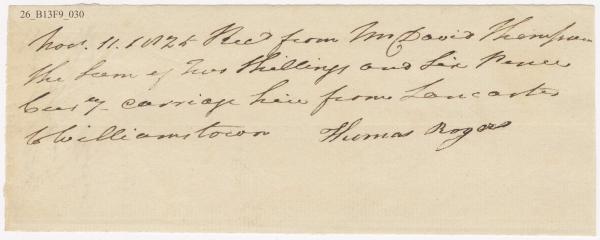 26_B13F9_030
Nov. 11. 1825 Recd from Mr David Thompson
the Sum of Two Shillings and Six Pence
Curcy. carriage hire from Lancaster
to Williamstown Thomas Rogers